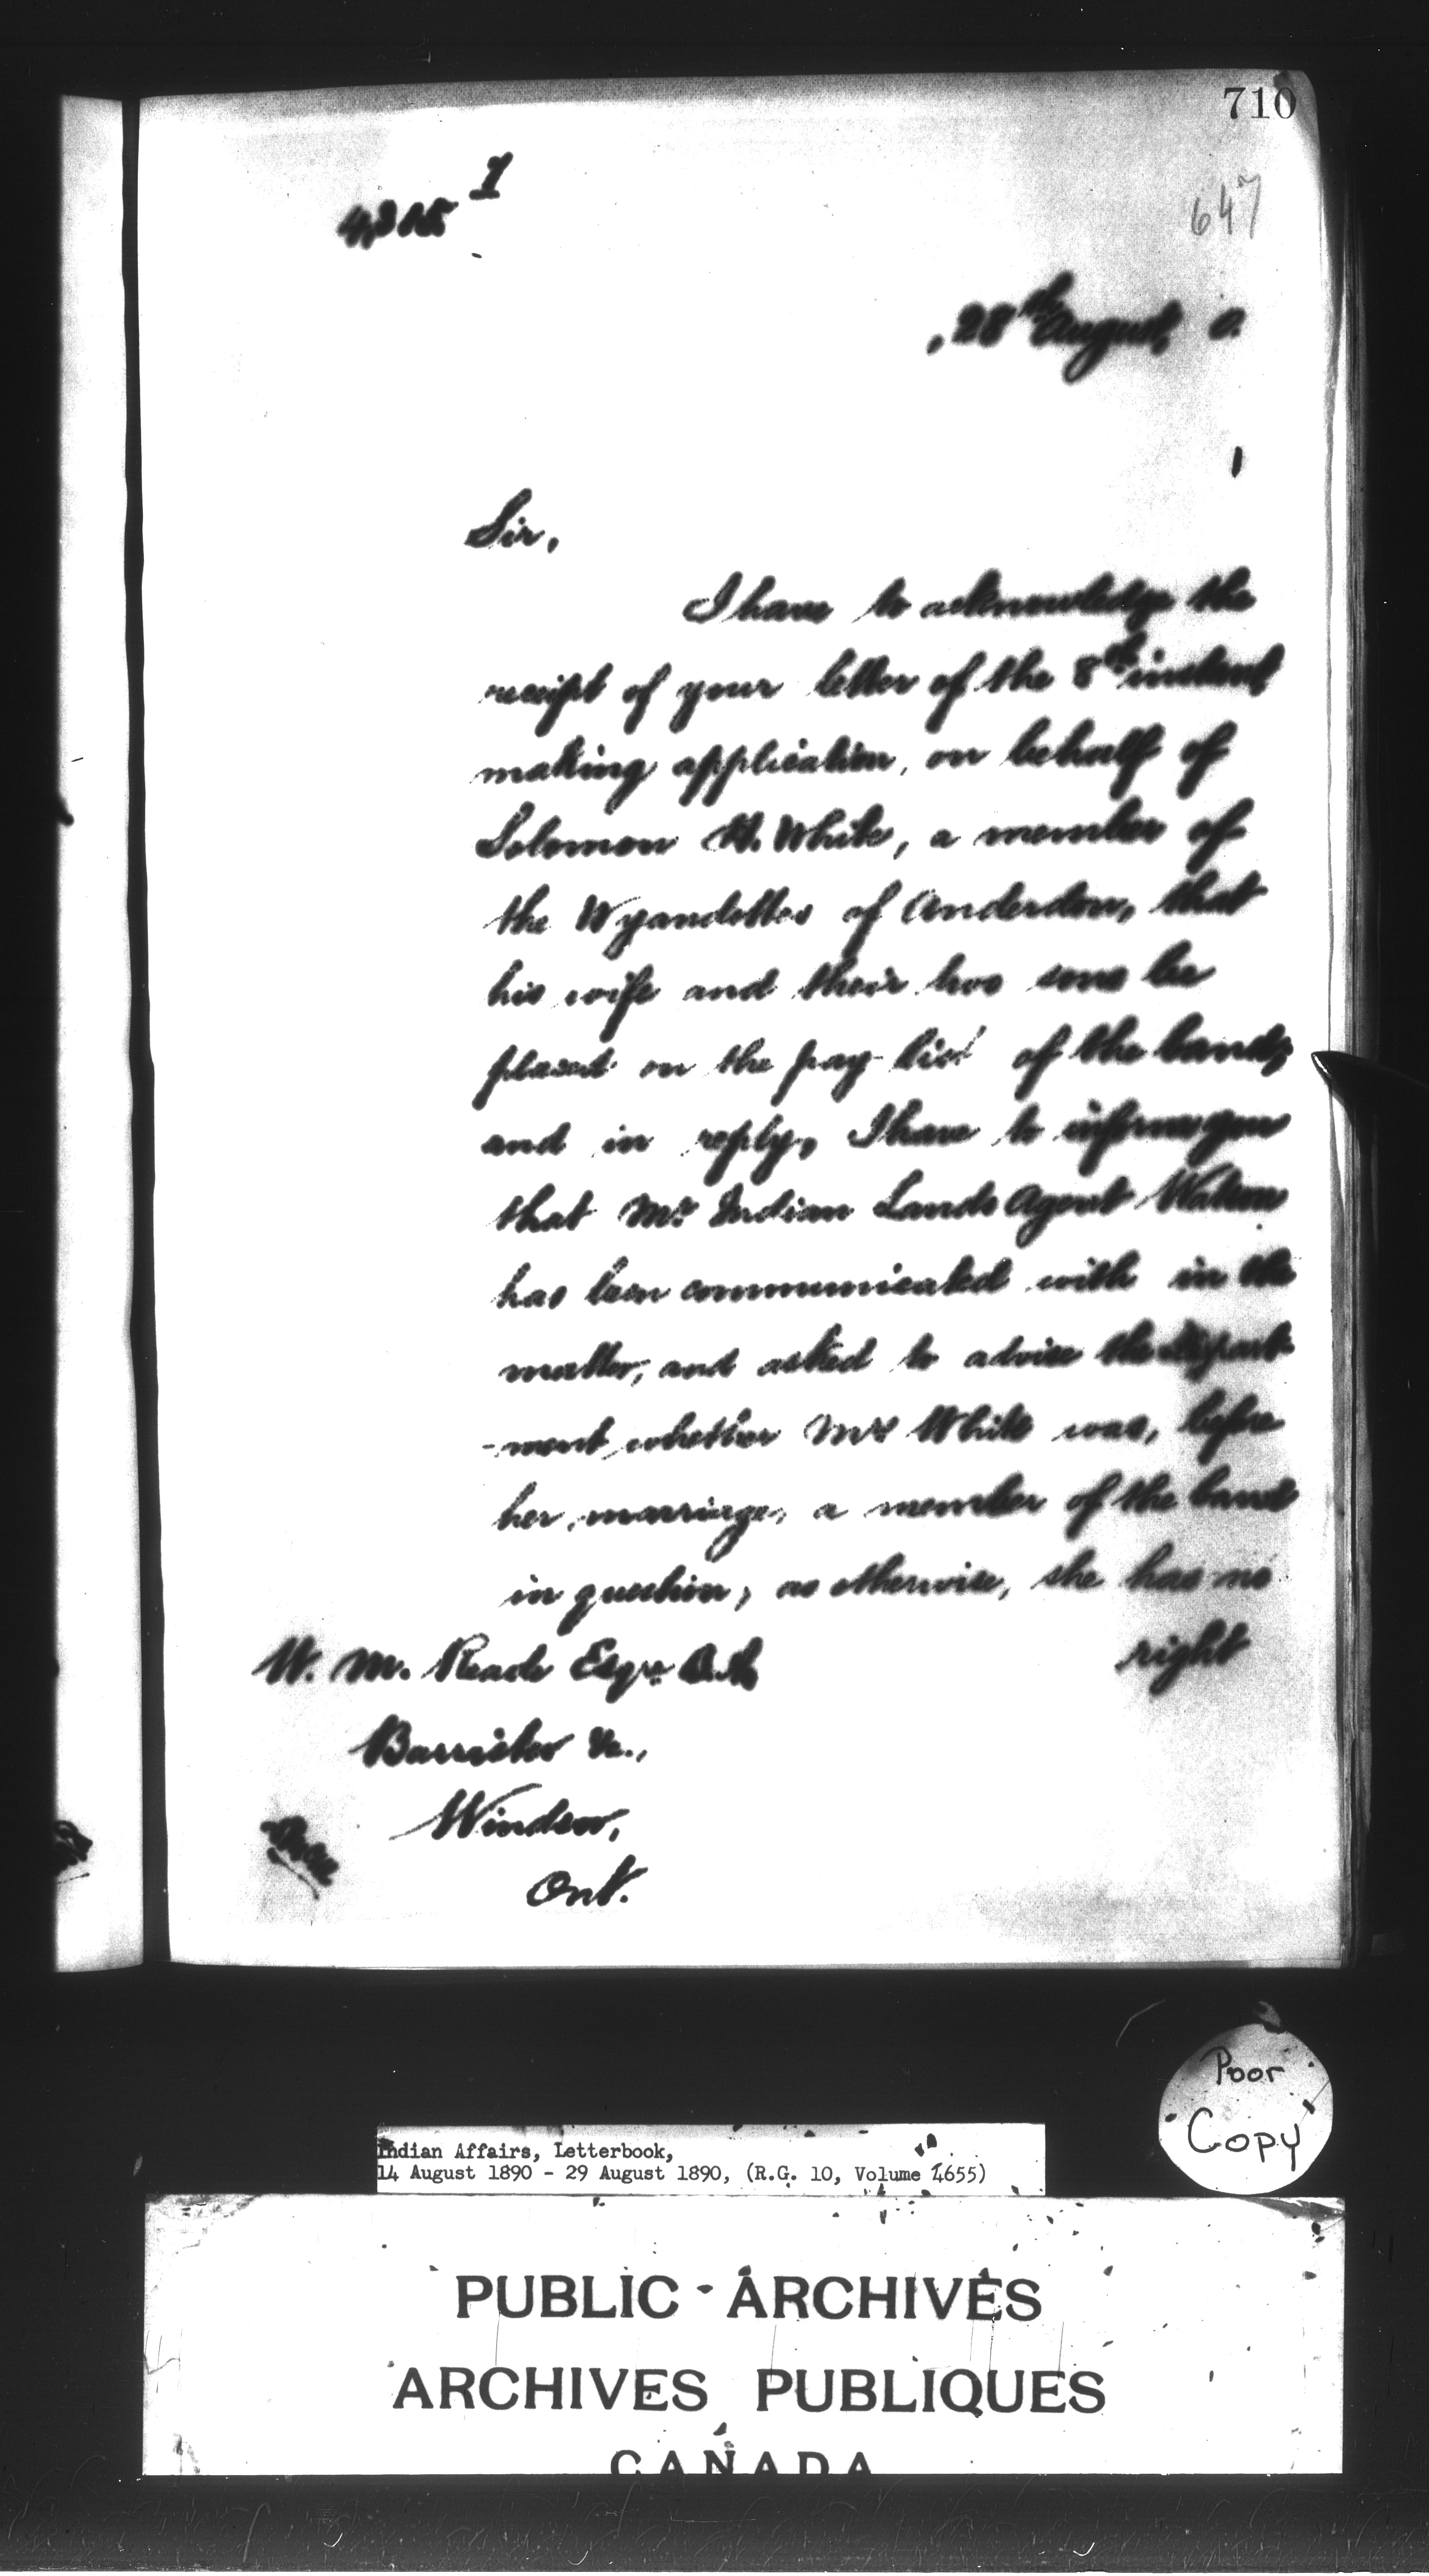 710
1
647
28th August, 0.
Sir,
I have to acknowledge the
receipt of your letter of the 8th instant,
making application, on behalf of
Solomon White, a member of
the Wyandottes of Anderdon, that
his wife and their two sons be
placed on the pay-list of the band,
and in reply, I have to inform you
that Mr. Indian Lands Agent Watson
has been communicated with in the
matter, and asked to advise the Depart-
-ment whether Mrs White was, before
her marriage, a member of the band
in question, as otherwise, she has no
right
W. M. Reade Esqre
Barrister &c.,
Windsor,
Ont.
Poor
Copy
Indian Affairs, Letterbook,
14 August 1890 - 29 August 1890, (R.G. 10, Volume 4655)
PUBLIC ARCHIVES
ARCHIVES PUBLIQUES
CANADA